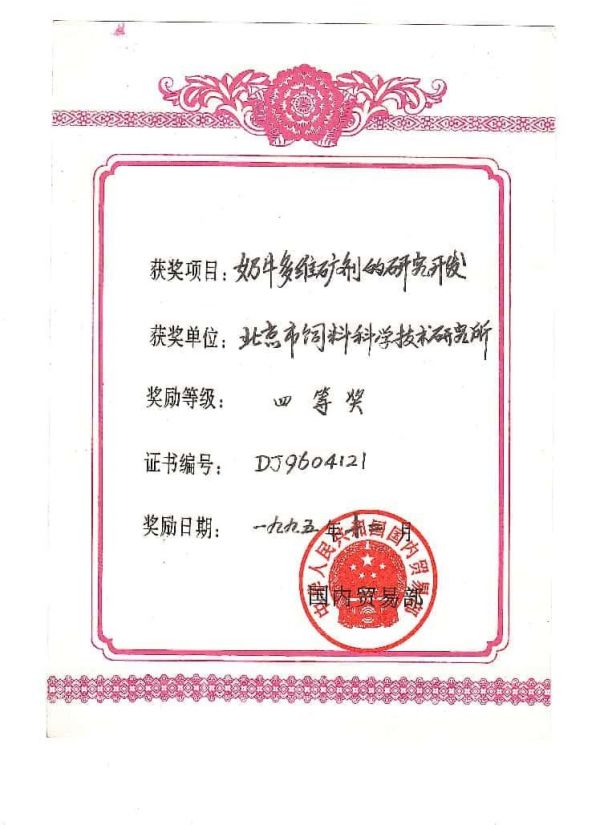 获奖项目：奶牛多维矿剂的研究开发
获奖单位：北京市饲料科学技术研究所
奖励等级：四等奖
证书编号：DJ9604121
奖励日期：一九九五年十二月
国内贸易部
中华人民共和国国内贸易部